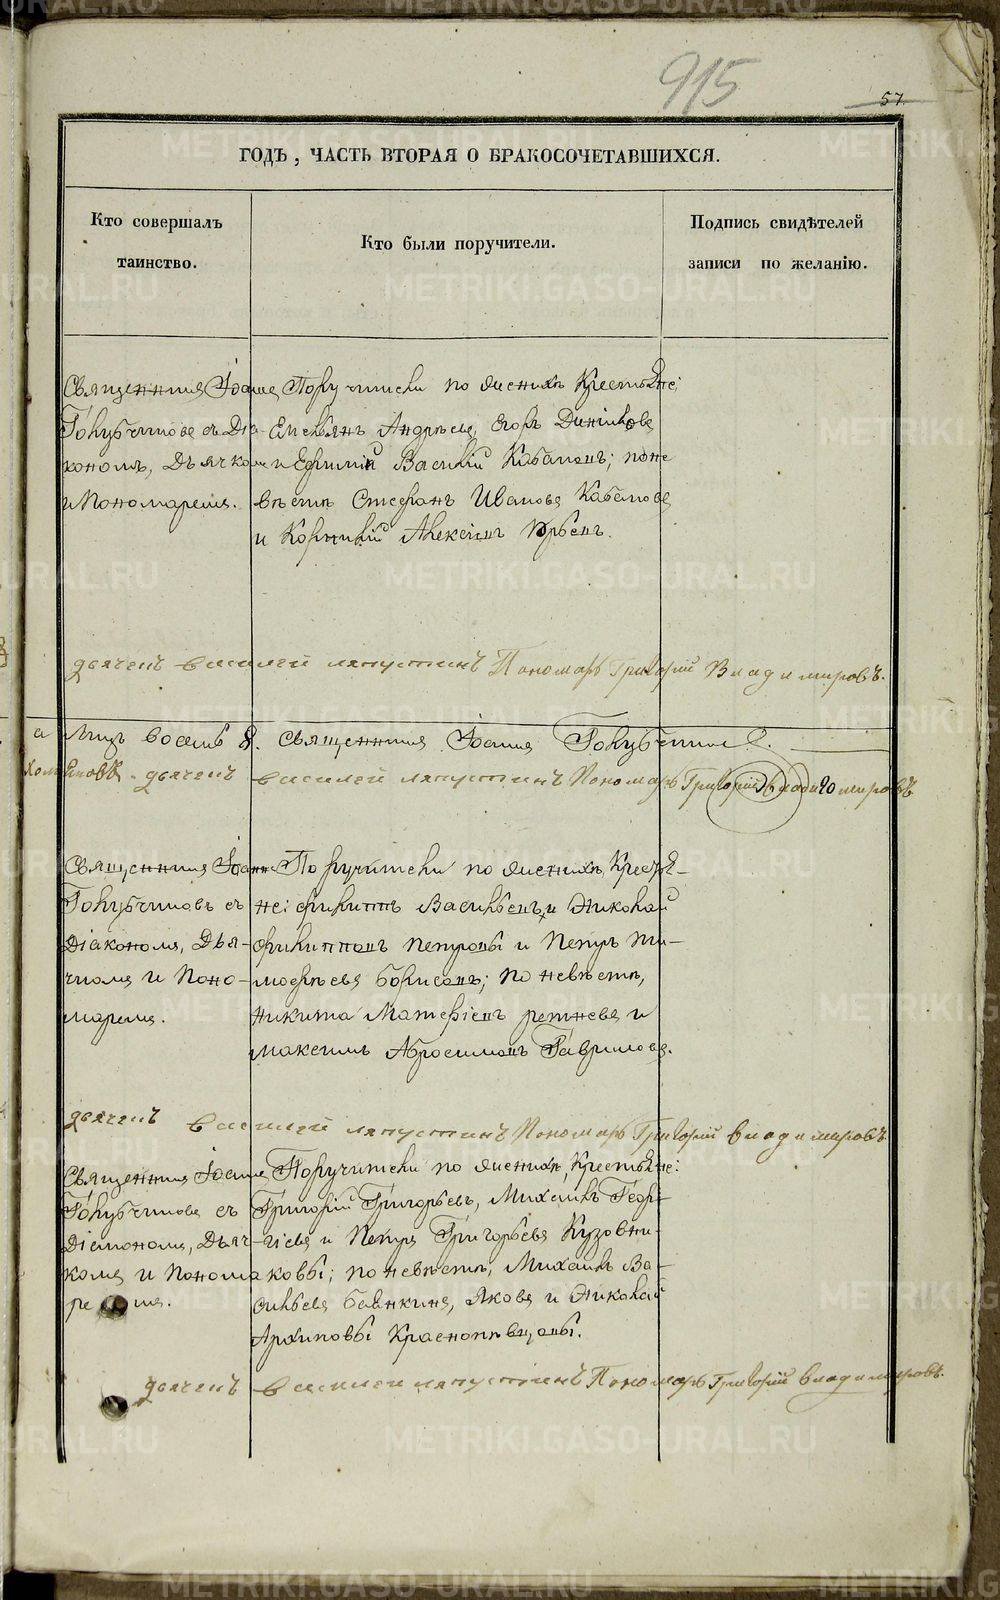 915
57.
ГОДЪ, ЧАСТЬ ВТОРАЯ О БРАКОСОЧЕТАВШИХСЯ.
Кто совершалъ таинство.
Кто были поручители.
Подпись свидѣтелей записи по желанію.
Священникъ Іоаннъ
Голубчиковъ съ Діа-
кономъ, Дьячкомъ
и Пономаремъ.
Поручители по женихѣ Крестьяне:
Емельянъ Андрѣевъ, Егоръ
и Ефимій Василій; по не
вѣстѣ Стефанъ Ивановъ
и Корнилій Алексѣевъ
дьячекъ василей ляпустинъ Пономарь Григорій Владимировъ.
а лицъ восемь 8. Священникъ Іоаннъ Голубчиковъ.
дьячекъ василей ляпустинъ Пономарь Григорій владимировъ
Священникъ Іоаннъ
Голубчиковъ съ
Діакономъ, Дья-
чкомъ и Поно-
маремъ.
Поручители по женихѣ, Крестья-
не: Филиппъ Васильевъ, и Николай
Филипповъ Петровы и Петръ Ти-
мофѣевъ Борисовъ; по невѣстѣ,
Никита Матфіевъ и
Максимъ Абросимовъ Гавриловъ.
дьячекъ василей ляпустинъ Пономарь Григорій владимировъ
Священникъ Іоаннъ
Голубчиковъ съ
Діакономъ, Дьяч-
комъ и Понома
ремъ.
Поручители по женихѣ, Крестьяне:
Григорій Григорьевъ, Михаилъ Геор-
гіевъ и Петръ Григорьевъ Кузовни-
ковы; по невѣстѣ, Михаилъ Ва-
сильевъ, Яковъ и Николай
Архиповы Краснопѣвцовы.
дьячекъ василей ляпустинъ Пономарь Григорій владимировъ.
METRIKI.GASO-URAL.RU